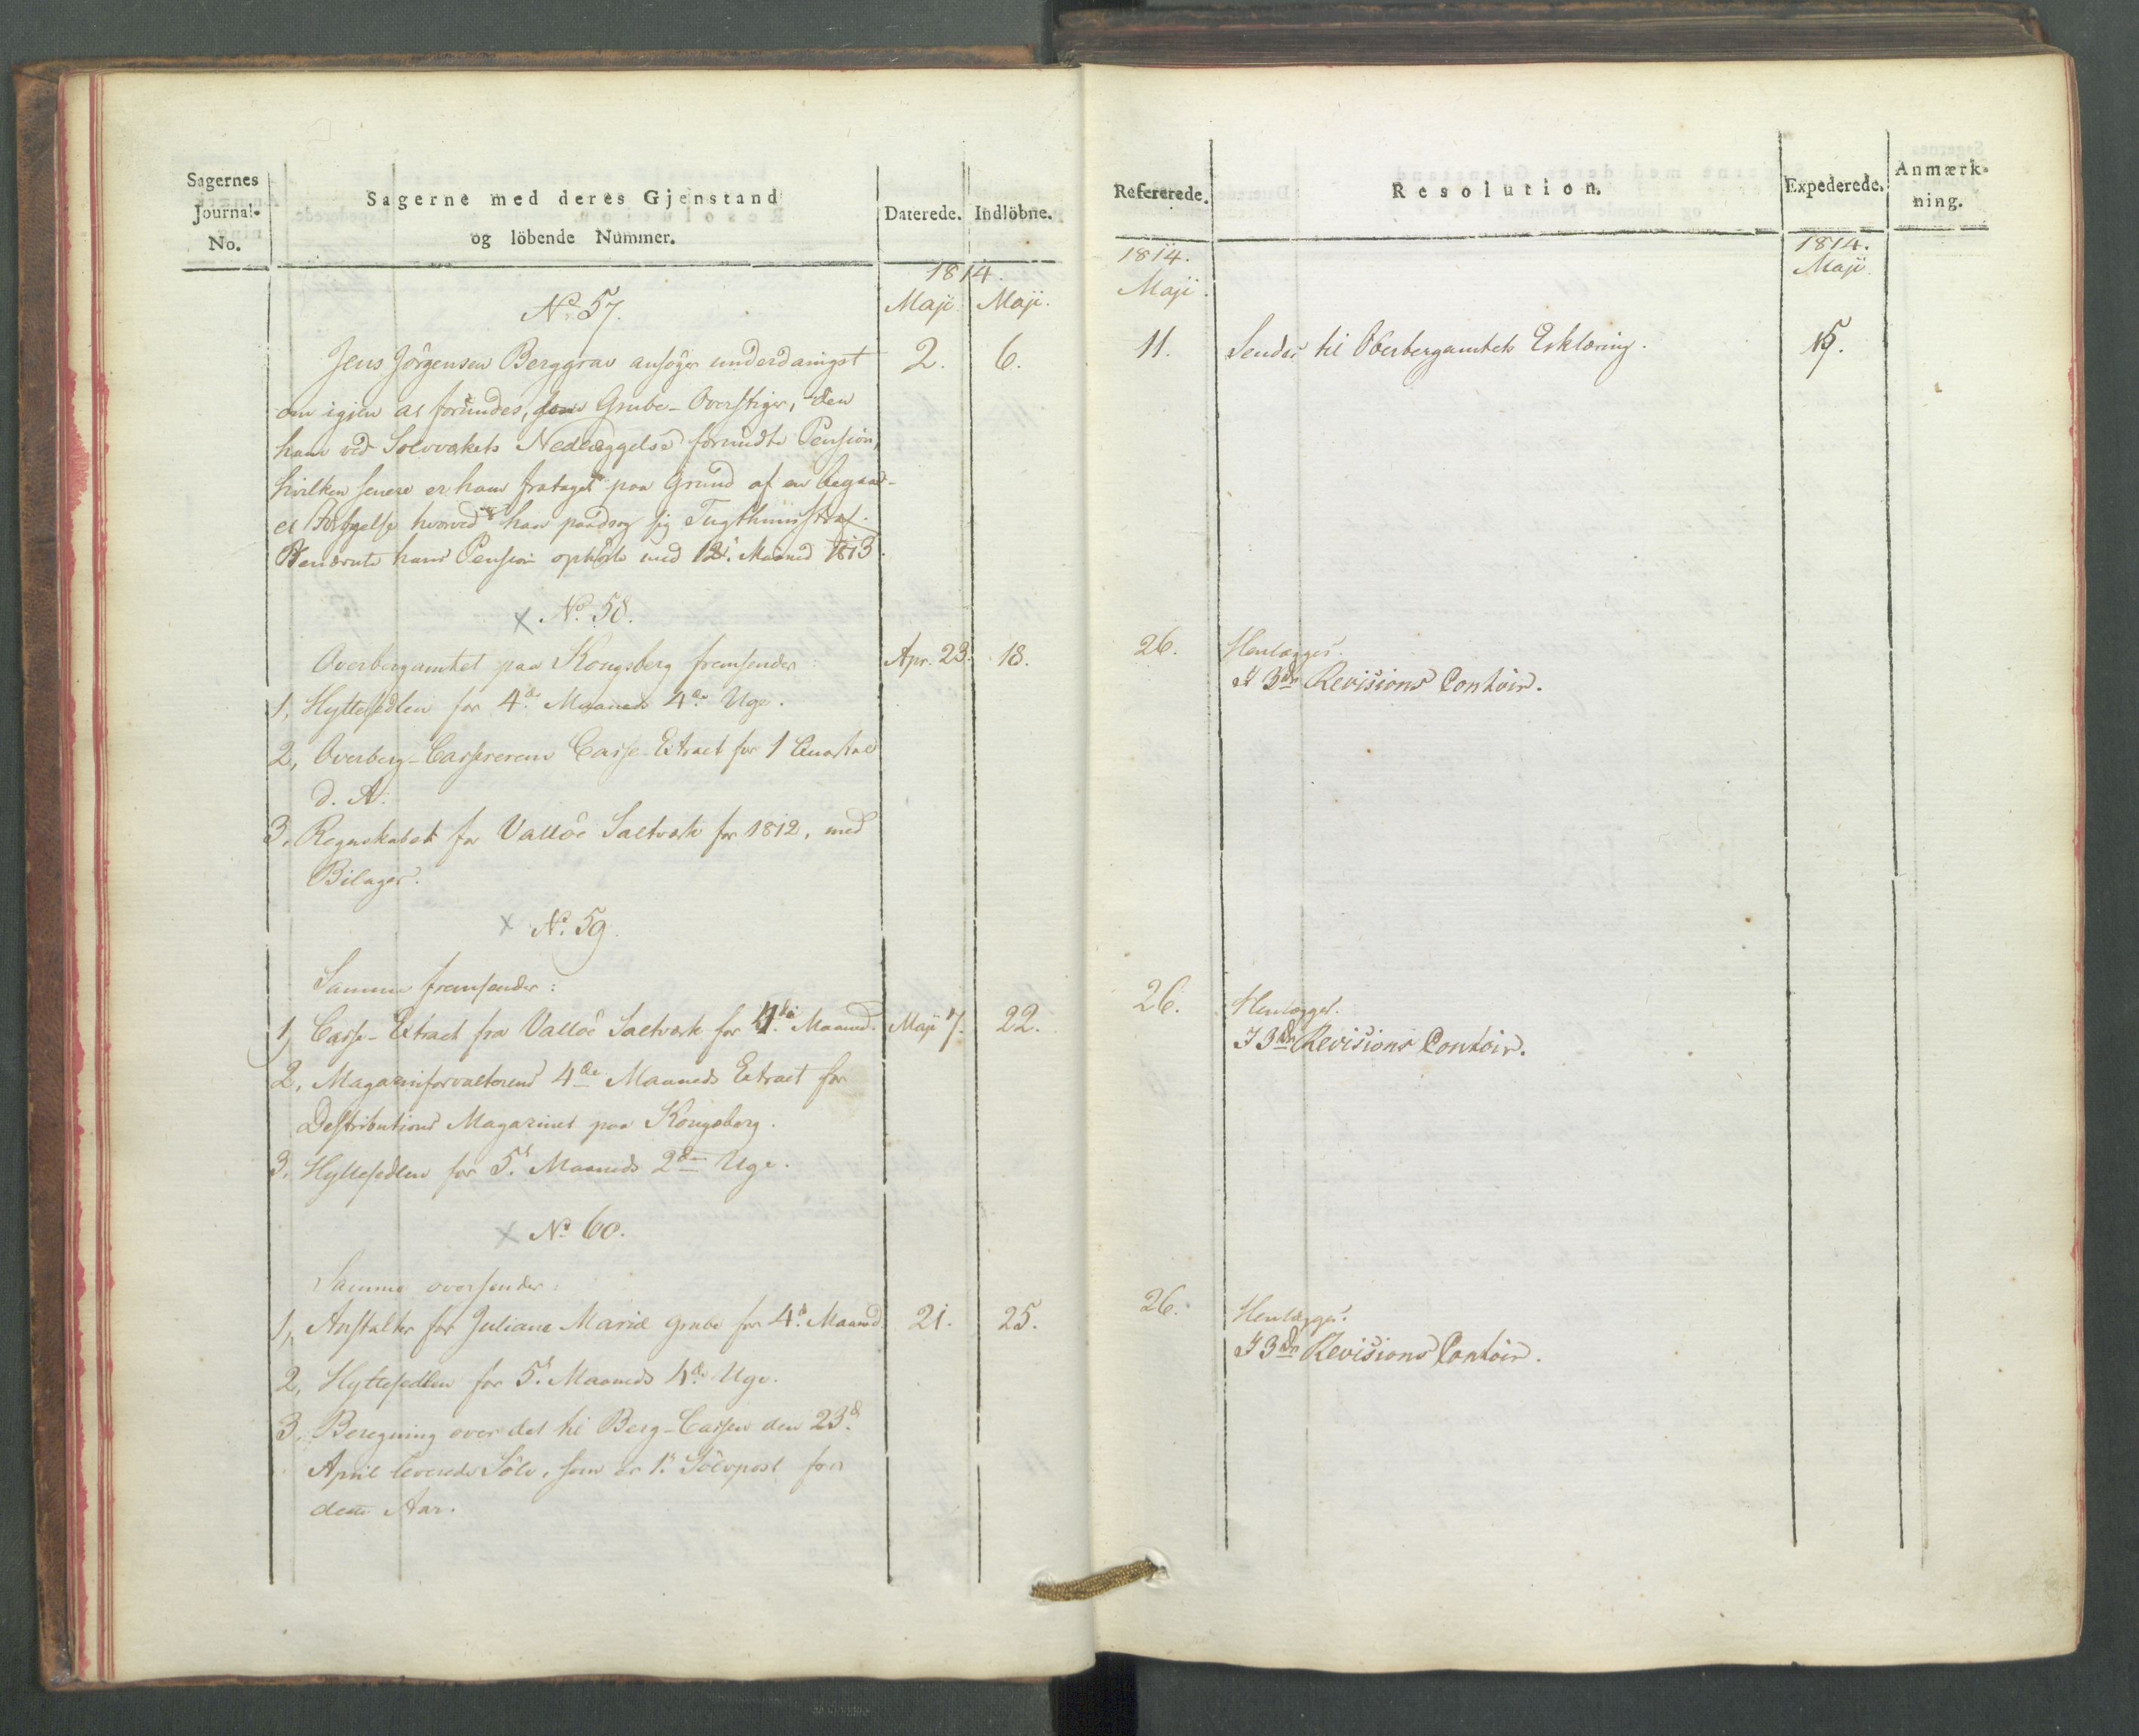 Sagernes
Journal-
No.
Sagerne med deres Gjenstand
og löbende Nummer.
Daterede.
Indlöbne.
Refererede.
Resolution.
Expederede.
Anmærk-
ning.
1814.
Maji
Maji.
1814.
Maji.
1814.
Maji
No. 57.
Jens Jörgensen Berggrav ansöger underdanigst
2.
6.
11.
Sendes til Oberbergamtets Erklæring.
15.
om igjen at forundes, som Grube-Overstiger, den
ham ved Sölvværkets Nedlæggelse forundte Pension,
hvilken senere er ham frataget paa Grund af en begaa-
et Forbrydelse hvorved han paadrog sig Tugthuusstraf.
Benævnte hans Pension ophörte med 12. Maaned 1813.
No. 58.
Overbergamtet paa Kongsberg fremsender:
Apr. 23.
18.
26.
Henlægges.
I 3de Revisions Contoir.
1, Hyttesedlen for 4de Maaneds 4de Uge.
2, Overberg-Cassererens Casse-Extract for 1 Quartal
d. A.
3, Regnskabet for Vallöe Saltværk for 1812, med
Bilager.
No. 59.
Samme fremsender:
1, Casse-Extract fra Vallöe Saltværk for 4de Maaned.
Maji 7.
22.
26.
Henlægges.
I 3de Revisions Contoir.
2, Magazinforvalterens 4de Maaneds Extract for
Distributions Magazinet paa Kongsberg.
3, Hyttesedlen for 5t Maaneds 2den Uge.
No. 60.
Samme oversender:
1, Anstalter for Juliane Maria Grube for 4d Maaned
21.
25.
26.
Henlægges.
I 3de Revisions Contoir.
2, Hyttesedlen for 5t Maaneds 4de Uge.
3, Beregning over det til Berg-Cassen den 23d
April leverede Sölv, som er 1te Sölvpost for
dette Aar.